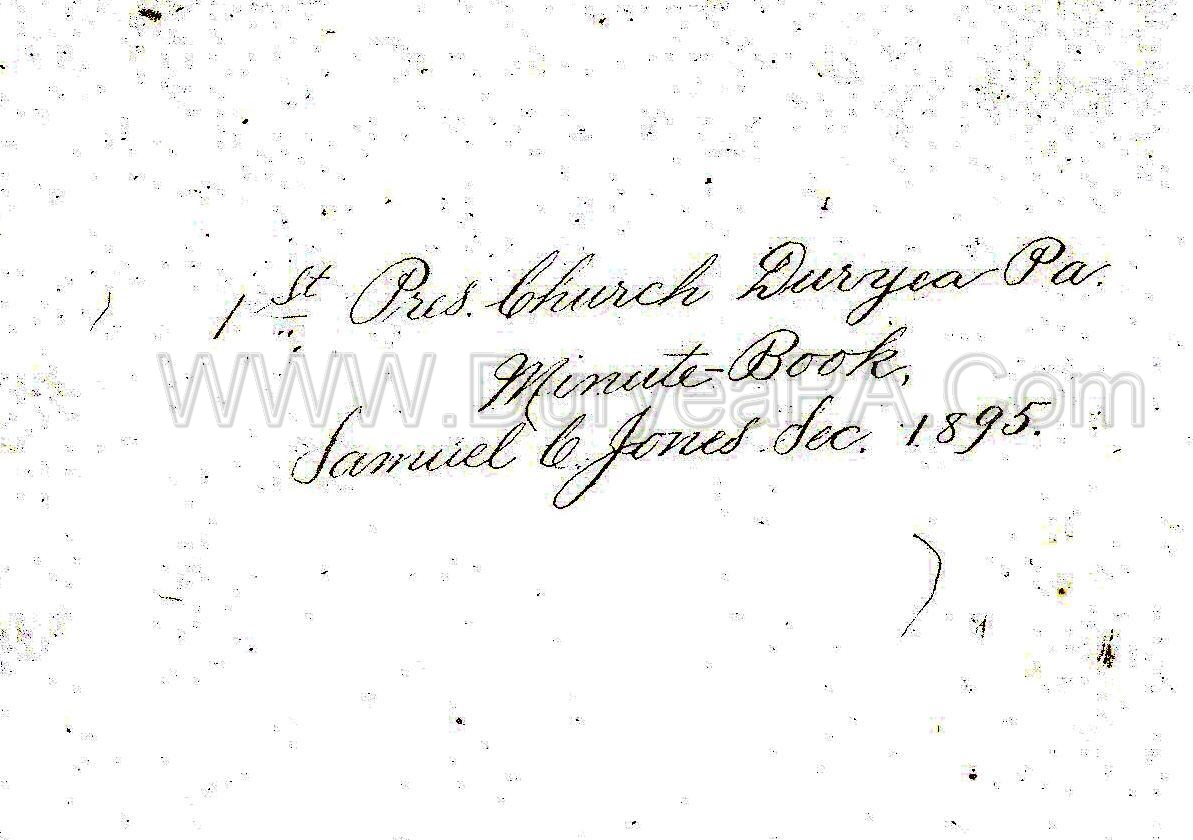 1st Pres. Church Duryea Pa.
Minute-Book,
WWW.DuryeaPA.Com
Samuel C. Jones Sec. 1895.